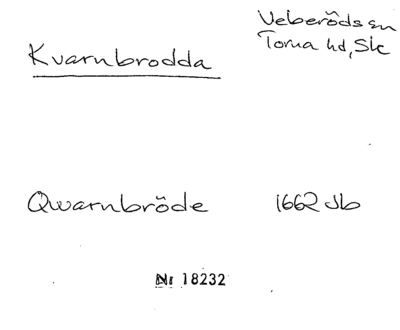 Veberöds sn
Kvarnbrodda Torna hd, Sk
Qwarnbröde 1662 Jb
Nr 18232